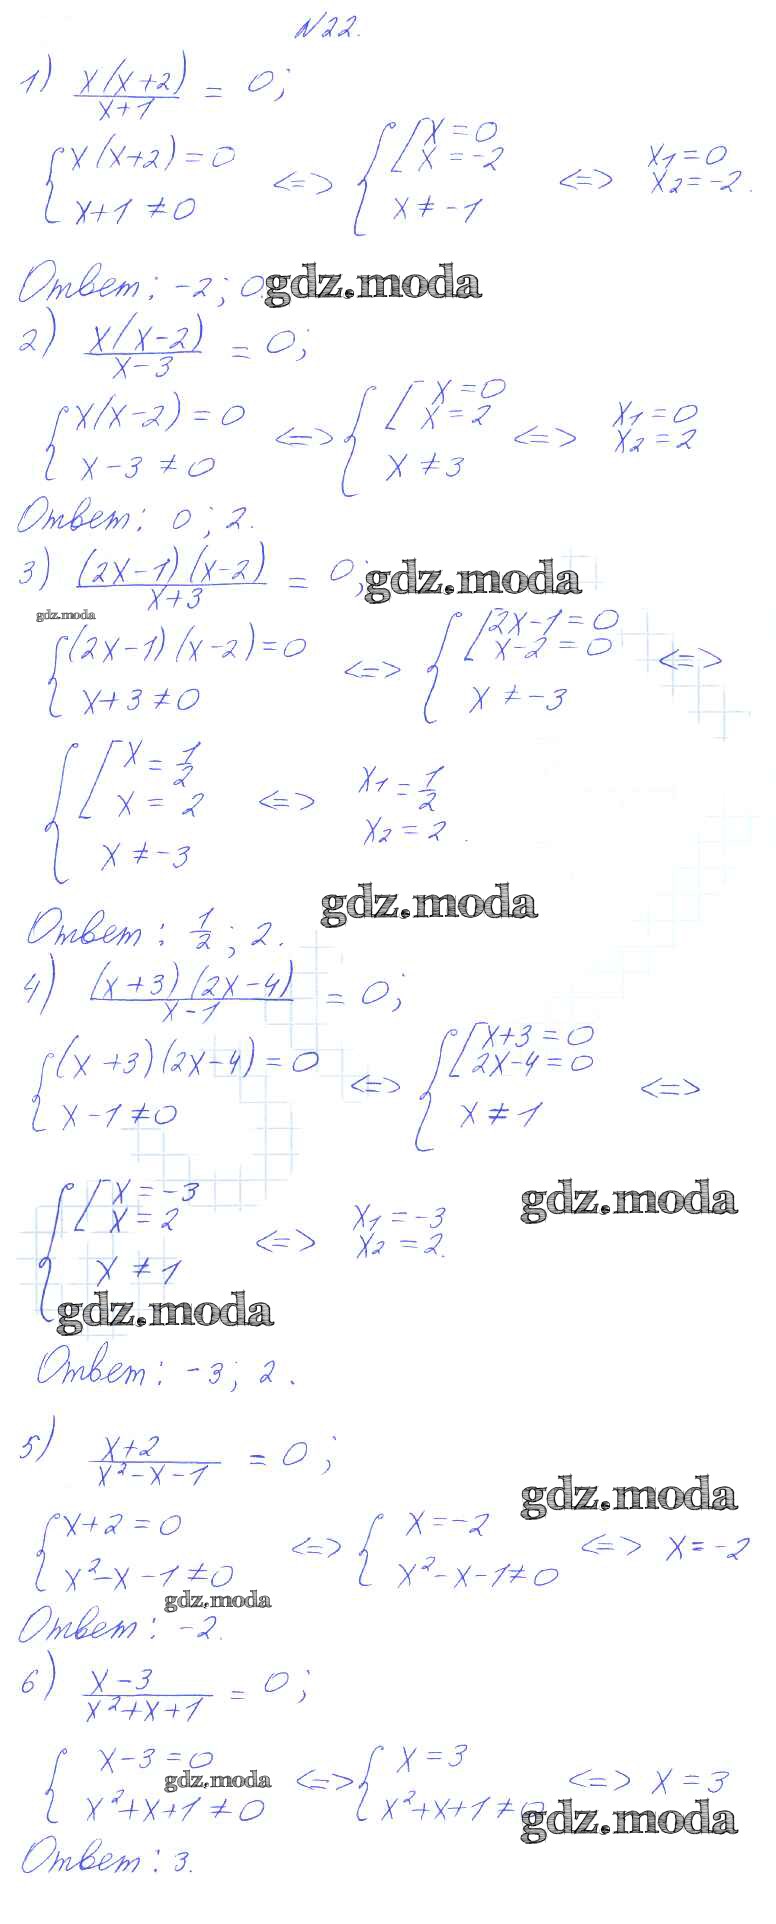 N22.
1) x(x+2)/x+1 = 0;
{ x(x+2)=0 x+1≠0 <=> { [ x=0 x=-2 x≠-1 <=> x1=0 x2=-2.
Ответ: -2; 0.
gdz.moda
2) x(x-2)/x-3 = 0;
{ x(x-2)=0 x-3≠0 <=> { [ x=0 x=2 x≠3 <=> x1=0 x2=2
Ответ: 0; 2.
3) (2x-1)(x-2)/x+3 = 0;
gdz.moda
gdz.moda
{ (2x-1)(x-2)=0 x+3≠0 <=> { [ 2x-1=0 x-2=0 x≠-3 <=>
{ [ x=1/2 x=2 x≠-3 <=> x1=1/2 x2=2.
gdz.moda
Ответ: 1/2; 2.
4) (x+3)(2x-4)/x-1 = 0;
{ (x+3)(2x-4)=0 x-1≠0 <=> { [ x+3=0 2x-4=0 x≠1 <=>
{ [ x=-3 x=2 x≠1 <=> x1=-3 x2=2.
gdz.moda
gdz.moda
Ответ: -3; 2.
5) x+2/x²-x-1 = 0;
gdz.moda
{ x+2=0 x²-x-1≠0 <=> { x=-2 x²-x-1≠0 <=> x=-2
gdz.moda
Ответ: -2.
6) x-3/x²+x+1 = 0;
{ x-3=0 x²+x+1≠0 <=> { x=3 x²+x+1≠0 <=> x=3
gdz.moda
gdz.moda
Ответ: 3.